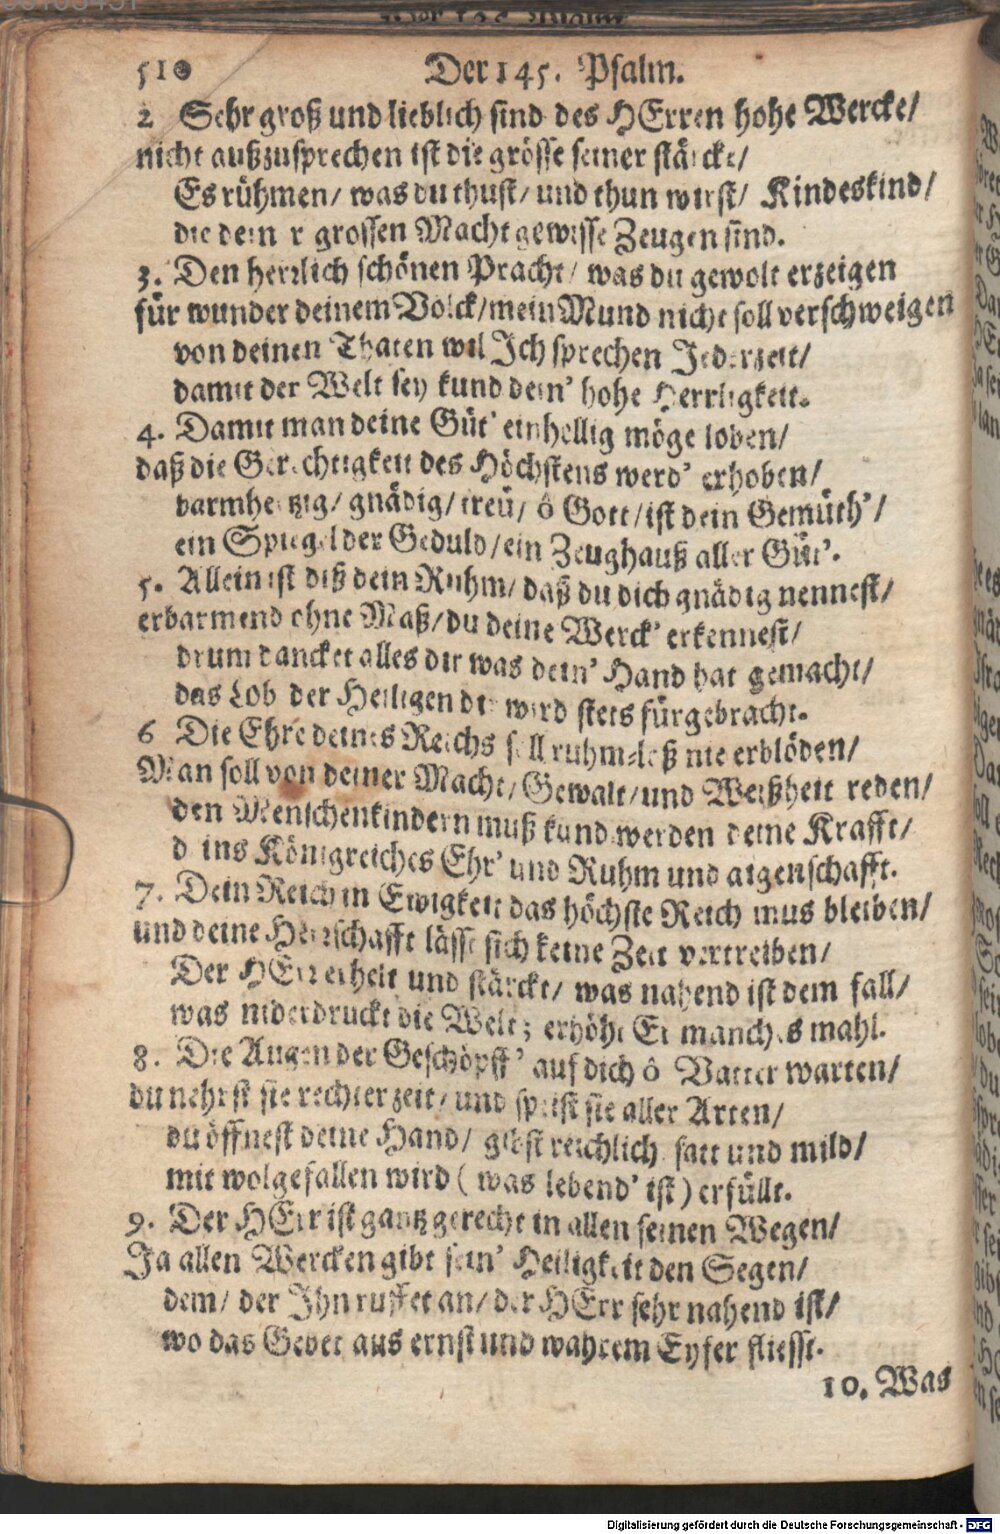 510 Der 145. Psalm.
2 Sehr groß und lieblich sind des HErren hohe Wercke/
nicht außzusprechen ist die grösse seiner stärcke/
Es rühmen/ was du thust/ und thun wirst/ Kindeskind/
die deiner grossen Macht gewisse Zeugen sind.
3. Den herrlich schönen Pracht/ was du gewolt erzeigen
für wunder deinem Volck/ mein Mund nicht soll verschweigen
von deinen Thaten wil Ich sprechen Jederzeit/
damit der Welt sey kund dein' hohe Herrligkeit.
4. Damit man deine Güt' einhellig möge loben/
daß die Gerechtigkeit des Höchstens werd' erhoben/
barmhertzig/ gnädig/ treü/ ô Gott/ ist dein Gemüth'/
ein Spiegel der Geduld/ ein Zeughauß aller Güt'.
5. Allein ist diß dein Ruhm/ daß du dich gnädig nennest/
erbarmend ohne Maß/ du deine Werck' erkennest/
drum dancket alles dir was dein' Hand hat gemacht/
das Lob der Heiligen dir wird stets fürgebracht.
6 Die Ehre deines Reichs soll ruhm-loß nie erblöden/
Man soll von deiner Macht/ Gewalt/ und Weißheit reden/
den Menschenkindern muß kund werden deine Krafft/
deins Königreiches Ehr' und Ruhm und aigenschafft.
7. Dein Reich in Ewigkeit das höchste Reich mus bleiben/
und deine Herrschafft lässt sich keine Zeit vertreiben/
Der HErr erhelt und stärckt/ was nahend ist dem fall/
was niderdruckt die Welt; erhöht Er manches mahl.
8. Die Augen der Geschöpff' auf dich ô Vatter warten/
du nehrst sie rechter zeit/ und speist sie aller Arten/
du öffnest deine Hand/ gibst reichlich satt und mild/
mit wolgefallen wird (was lebend' ist) erfüllt.
9. Der HErr ist gantz gerecht in allen seinen Wegen/
Ja allen Wercken gibt sein' Heiligkeit den Segen/
dem/ der Ihn ruffet an/ der HErr sehr nahend ist/
wo das Gebet aus ernst und wahrem Eyfer fliesst.
10. Was
Digitalisierung gefördert durch die Deutsche Forschungsgemeinschaft - DFG